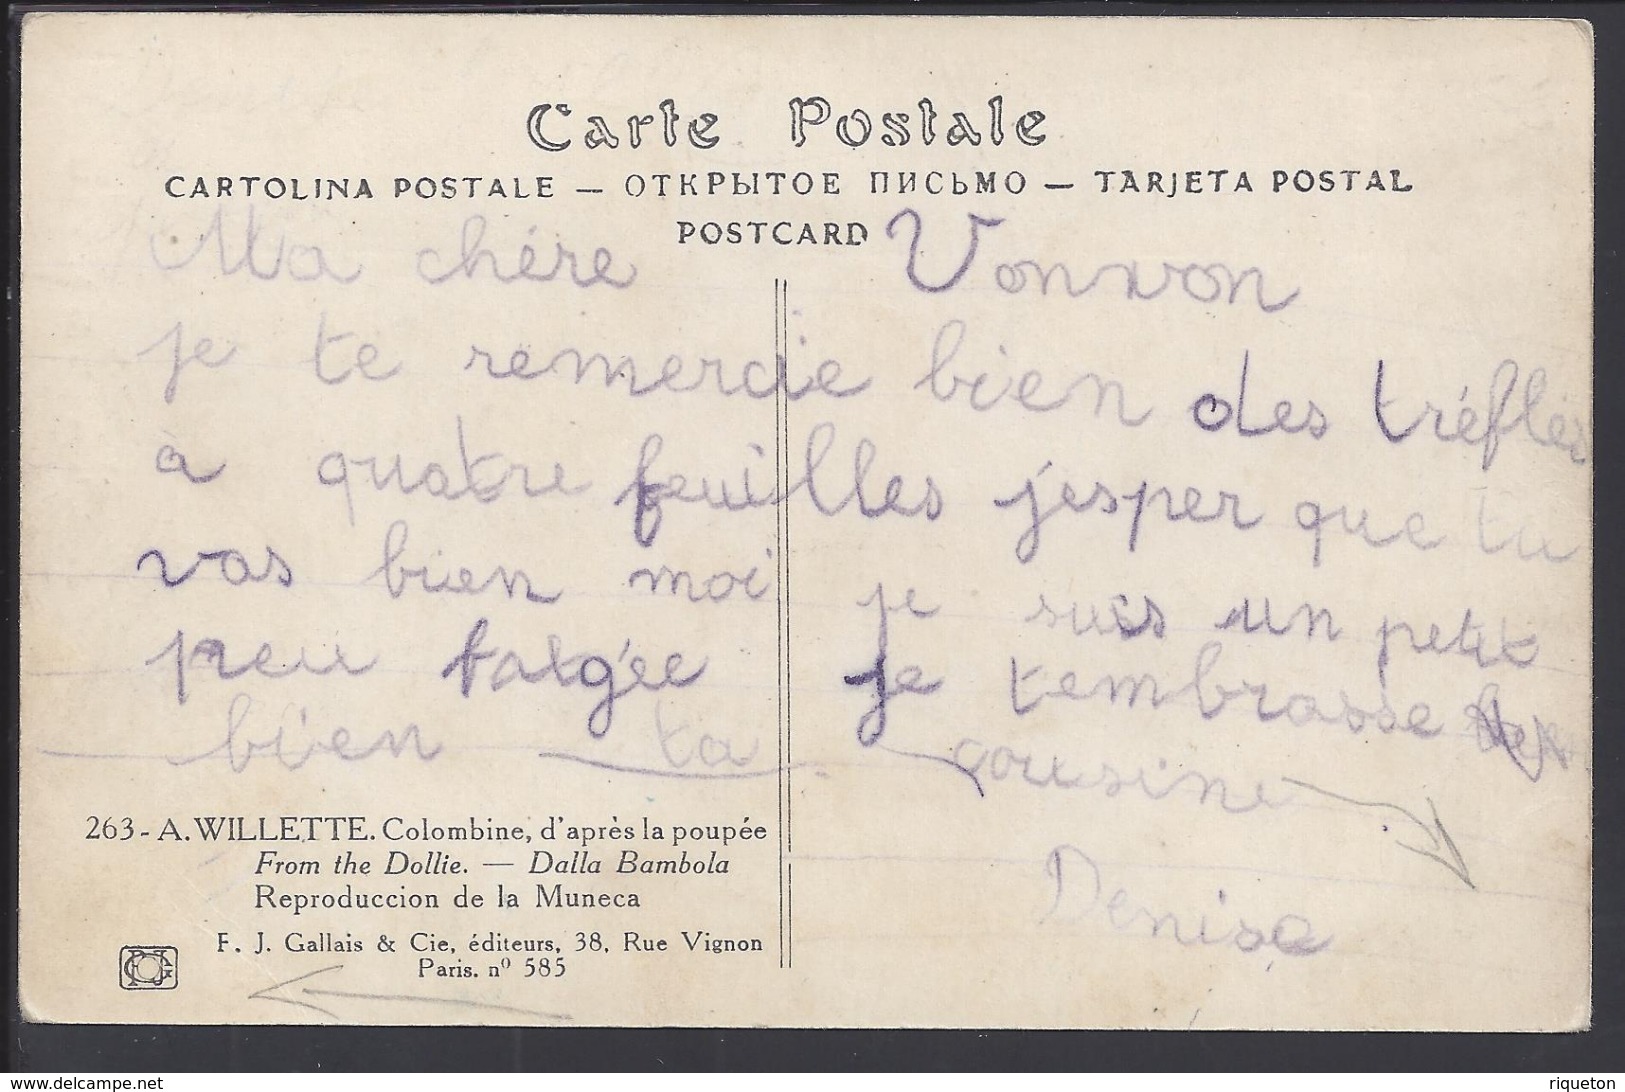 Carte Postale
CARTOLINA POSTALE — ОТКРЫТОЕ ПИСЬМО — TARJETA POSTAL
POSTCARD
Ma chére Vonvon
je te remercie bien des tréfles
à quatre feuilles j'esper que tu
vas bien moi je suis un petit
peu fatgée je t'embrasse
bien ta cousine
Denise
263 - A. WILLETTE. Colombine, d'après la poupée
From the Dollie. — Dalla Bambola
Reproduccion de la Muneca
F. J. Gallais & Cie, éditeurs, 38, Rue Vignon
Paris. nº 585
www.delcampe.net
riqueton